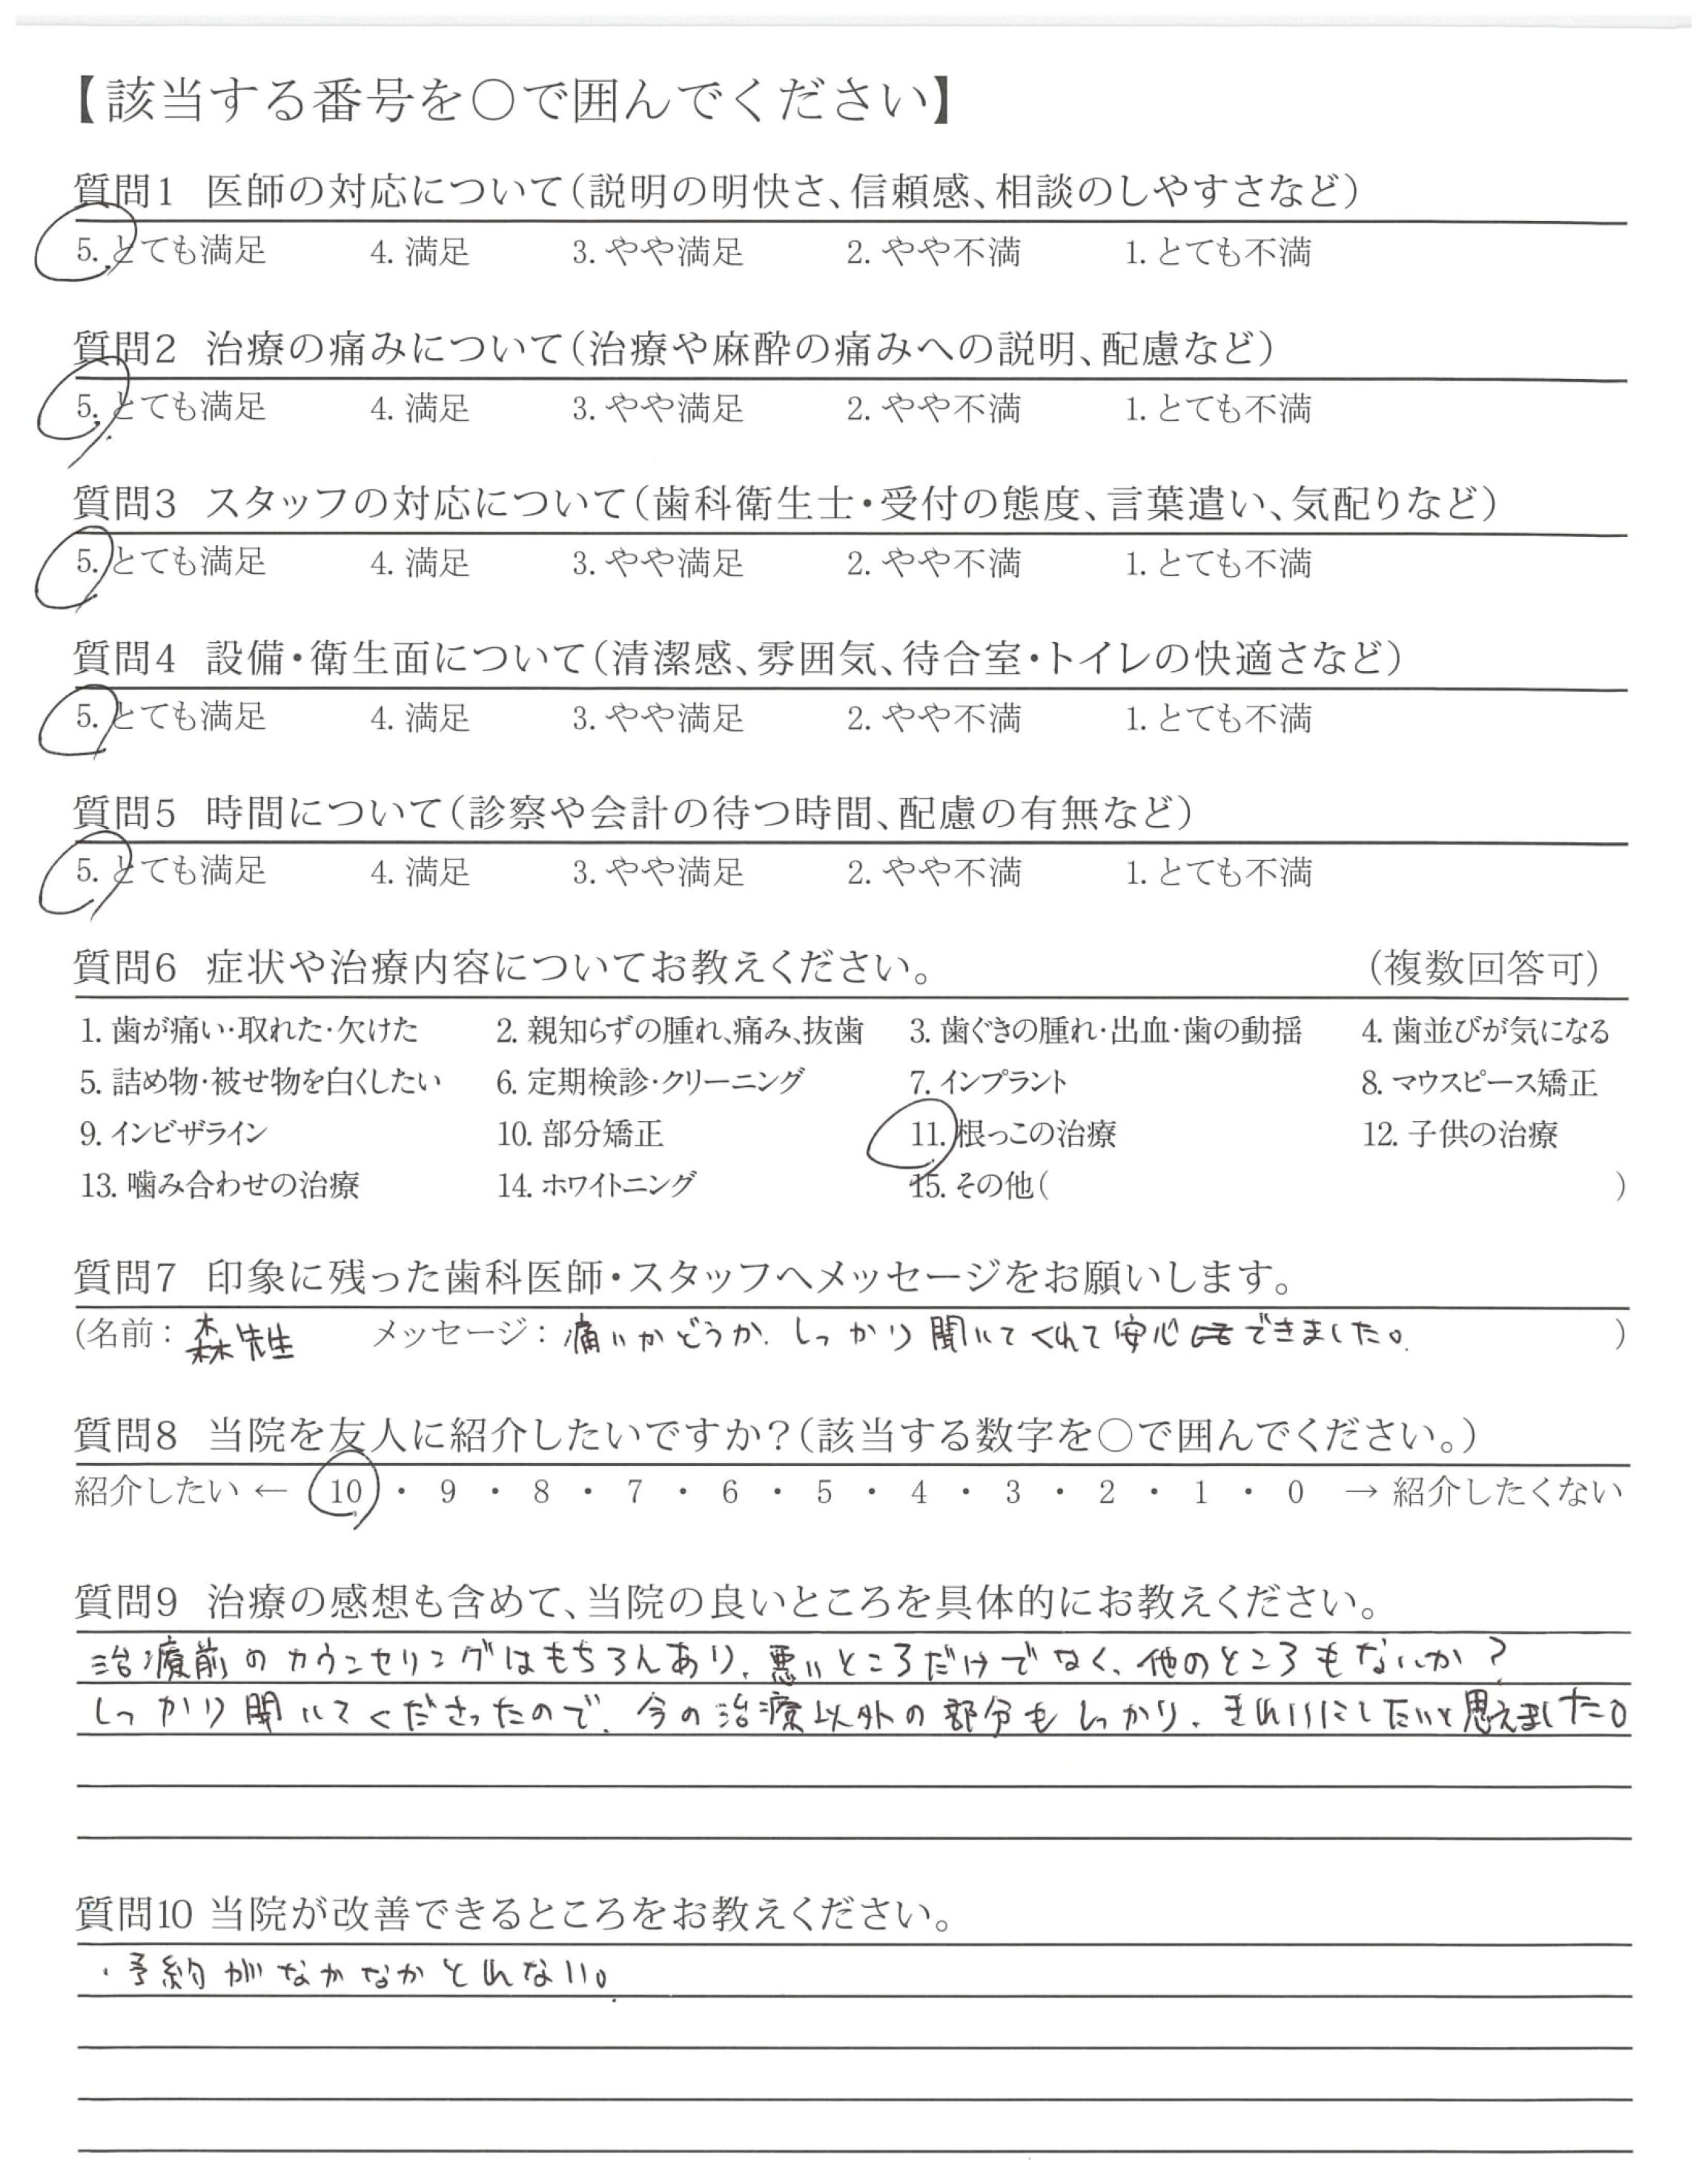 【該当する番号を○で囲んでください】
質問1 医師の対応について(説明の明快さ、信頼感、相談のしやすさなど)
5. とても満足 4. 満足 3. やや満足 2. やや不満 1. とても不満
質問2 治療の痛みについて(治療や麻酔の痛みへの説明、配慮など)
5. とても満足 4. 満足 3. やや満足 2. やや不満 1. とても不満
質問3 スタッフの対応について(歯科衛生士・受付の態度、言葉遣い、気配りなど)
5. とても満足 4. 満足 3. やや満足 2. やや不満 1. とても不満
質問4 設備・衛生面について(清潔感、雰囲気、待合室・トイレの快適さなど)
5. とても満足 4. 満足 3. やや満足 2. やや不満 1. とても不満
質問5 時間について(診察や会計の待つ時間、配慮の有無など)
5. とても満足 4. 満足 3. やや満足 2. やや不満 1. とても不満
質問6 症状や治療内容についてお教えください。 (複数回答可)
1. 歯が痛い・取れた・欠けた 2. 親知らずの腫れ、痛み、抜歯 3. 歯ぐきの腫れ・出血・歯の動揺 4. 歯並びが気になる
5. 詰め物・被せ物を白くしたい 6. 定期検診・クリーニング 7. インプラント 8. マウスピース矯正
9. インビザライン 10. 部分矯正 11. 根っこの治療 12. 子供の治療
13. 噛み合わせの治療 14. ホワイトニング 15. その他( )
質問7 印象に残った歯科医師・スタッフへメッセージをお願いします。
(名前: 森先生 メッセージ: 痛いかどうか、しっかり聞いてくれて安心できました。 )
質問8 当院を友人に紹介したいですか?(該当する数字を○で囲んでください。)
紹介したい ← 10 ・ 9 ・ 8 ・ 7 ・ 6 ・ 5 ・ 4 ・ 3 ・ 2 ・ 1 ・ 0 → 紹介したくない
質問9 治療の感想も含めて、当院の良いところを具体的にお教えください。
治療前のカウンセリングはもちろんあり、悪いところだけでなく、他のところもないか?
しっかり聞いてくださったので、今の治療以外の部分もしっかり、きれいにしたいと思えました。
質問10 当院が改善できるところをお教えください。
・予約がなかなかとれない。